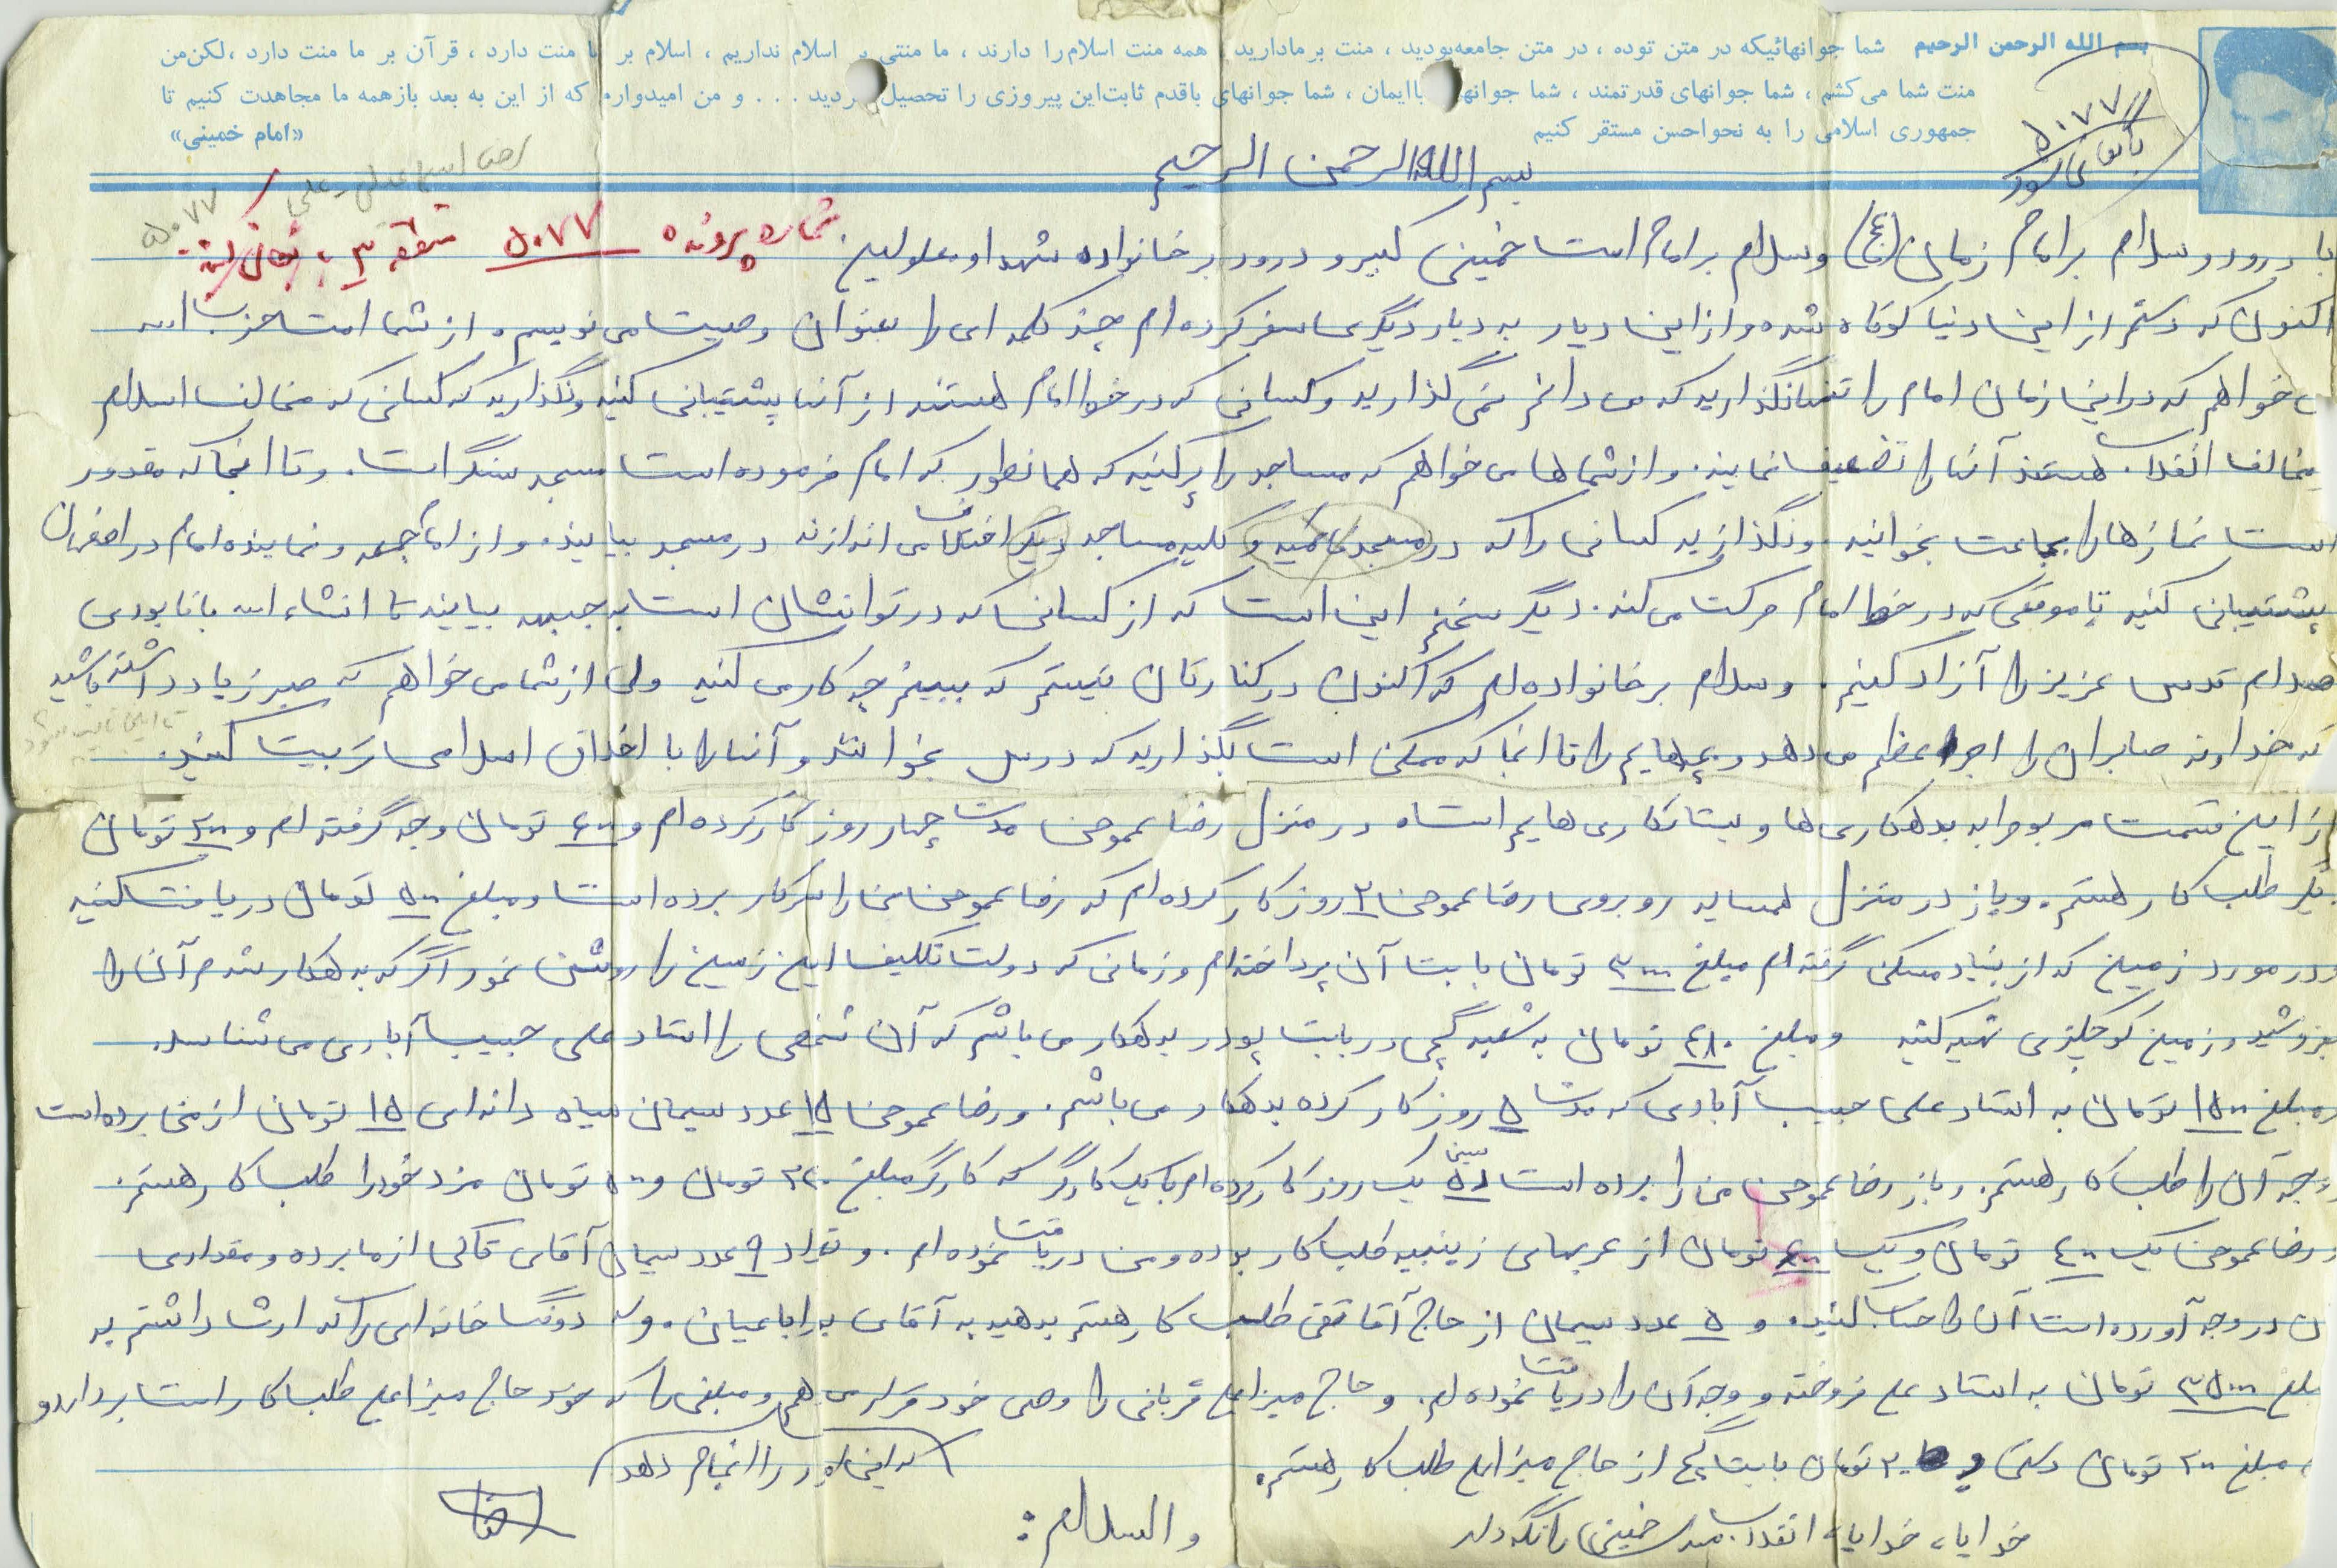 بسم الله الرحمن الرحیم شما جوانهائیکه در متن توده ، در متن جامعه‌بودید ، منت برمادارید ، همه منت اسلام‌را دارند ، ما منتی بر اسلام نداریم ، اسلام بر ما منت دارد ، قرآن بر ما منت دارد ، لکن‌من
منت شما می‌کشم ، شما جوانهای قدرتمند ، شما جوانهای باایمان ، شما جوانهای باقدم ثابت‌این پیروزی را تحصیل کردید . . . و من امیدوارم که از این به بعد بازهمه ما مجاهدت کنیم تا
جمهوری اسلامی را به نحواحسن مستقر کنیم «امام خمینی»
۵۰۷۷
بسم الله الرحمن الرحیم
۵۰۷۷
شماره پرونده ۵۰۷۷
با درود و سلام بر امام زمان (عج) و سلام بر امام امت خمینی کبیر و درود بر خانواده شهدا و معلولین.
اکنون که دستم از این دنیا کوتاه شده و از این دیار به دیار دیگری سفر کرده‌ام چند کلمه ای را بعنوان وصیت می نویسم. از شما امت حزب الله
می خواهم که در این زمان امام را تنها نگذارید که می دانم نمی گذارید و کسانی که در خط امام هستند از آنها پشتیبانی کنید و نگذارید که کسانی که مخالف اسلام
و مخالف انقلاب هستند آنها را تضعیف نمایند. و از شماها می خواهم که مساجد را پر کنید که همانطور که امام فرموده است مسجد سنگر است. و تا آنجا که مقدور
است نمازها را بجماعت بخوانید. و نگذارید کسانی را که در مسجد و کلیه مساجد دیگر اختلاف می اندازند در مسجد بیایند. و از امام جمعه و نماینده امام در اصفهان
پشتیبانی کنید تا موقعی که در خط امام حرکت می کند. دیگر سخنم این است که از کسانی که در توانشان است به جبهه بیایند تا انشاء الله با نابودی
صدام قدس عزیز را آزاد کنیم. و سلام بر خانواده ام که اکنون در کنارتان نیستم که ببینم چه کار می کنید ولی از شما می خواهم که صبر زیاد داشته باشید
که خداوند صابران را اجر عظیم می دهد و بچه هایم را تا آنجا که ممکن است بگذارید که درس بخوانند و آنها را با اخلاق اسلامی تربیت کنید.
از این قسمت مربوط به بدهکاری ها و بستانکاری هایم است. در منزل رضا عموحسن مدت چهار روز کار کرده ام و ۶۰۰ تومان وجه گرفته ام و ۲۰۰ تومان
دیگر طلب کار هستم. و باز در منزل همسایه روبروی رضا عموحسن ۲ روز کار کرده ام که رضا عموحسن من را سر کار برده است و مبلغ ۵۰۰ تومان دریافت کنید
و در مورد زمین که از بنیاد مسکن گرفته ام مبلغ ۳۰۰۰ تومان بابت آن پرداخته ام و زمانی که دولت تکلیف این زمین را روشن نمود اگر که بدهکار شدم آن را
بفروشید و زمین کوچکتری تهیه کنید و مبلغ ۴۸۰ تومان به سعید گچی در بابت پودر بدهکار می باشم که آن شخص را استاد علی حبیب آبادی می شناسد.
و مبلغ ۱۵۰۰ تومان به استاد علی حبیب آبادی که مدت ۵ روز کار کرده بدهکار می باشم. و رضا عموحسن ۱۵ عدد سیمان سیاه دانه ای ۱۵ تومان از من برده است
وجه آن را طلب کار هستم. و باز رضا عموحسن من را برده است یک روز کار کرده ام با یک کارگر که کارگر مبلغ ۲۲۰ تومان و ۵۰۰ تومان مزد خود را طلب کار هستم.
و رضا عموحسن یک ۴۰۰ تومان و یک تومان از عربهای زینبیه طلب کار بوده و من دریافت نموده ام. و تعداد ۹ عدد سیمان آقای از ما برده و مقداری
آن در وجه آورده است آن را حساب کنید. و ۵ عدد سیمان از حاج آقا تقی طلب کار هستم بدهید به آقای. و سه دونگ خانه ای را که ارث داشتم به
مبلغ ۳۵۰۰۰ تومان به استاد علی فروخته و وجه آن را دریافت نموده ام. و حاج میرزا علی قربانی را وصی خود قرار می دهم و مبلغی را که خود حاج میرزا علی طلب کار است بردارد و
که این امور را انجام دهد
مبلغ ۲۰۰ تومان دستی و ۲۰۰ تومان بابت گچ از حاج میرزا علی طلب کار هستم.
خدایا، خدایا، انقلاب خمینی را نگه دار
والسلام: